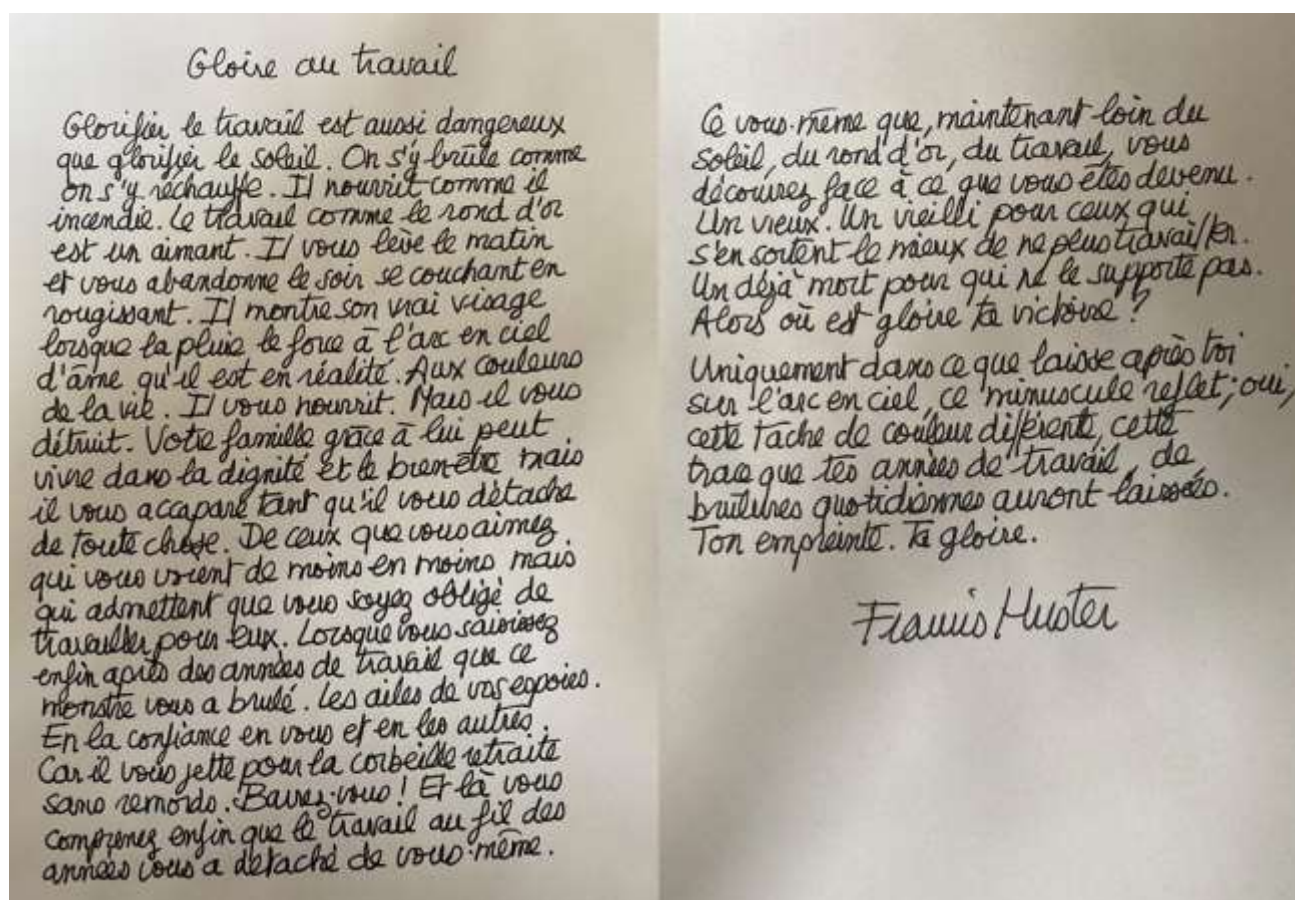 Gloire au travail
Glorifier le travail est aussi dangereux
que glorifier le soleil. On s'y brûle comme
on s'y réchauffe. Il nourrit comme il
incendie. Le travail comme le rond d'or
est un aimant. Il vous lève le matin
et vous abandonne le soir se couchant en
rougissant. Il montre son vrai visage
lorsque la pluie le force à l'arc en ciel
d'âme qu'il est en réalité. Aux couleurs
de la vie. Il vous nourrit. Mais il vous
détruit. Votre famille grâce à lui peut
vivre dans la dignité et le bien-être mais
il vous accapare tant qu'il vous détache
de toute chose. De ceux que vous aimez
qui vous voient de moins en moins mais
qui admettent que vous soyez obligé de
travailler pour eux. Lorsque vous saisissez
enfin après des années de travail que ce
monstre vous a brulé. Les ailes de vos espoirs.
En la confiance en vous et en les autres.
Car il vous jette pour la corbeille retraite
sans remords. Barrez-vous ! Et là vous
comprenez enfin que le travail au fil des
années vous a détaché de vous-même.
Ce vous-même que, maintenant loin du
soleil, du rond d'or, du travail, vous
découvrez face à ce que vous êtes devenu.
Un vieux. Un vieilli pour ceux qui
s'en sortent le mieux de ne plus travailler.
Un déjà mort pour qui ne le supporte pas.
Alors où est gloire ta victoire ?
Uniquement dans ce que laisse après toi
sur l'arc en ciel, ce minuscule reflet, oui,
cette tache de couleur différente, cette
trace que tes années de travail, de
brulures quotidiennes auront laissées.
Ton empreinte. Ta gloire.
Francis Huster